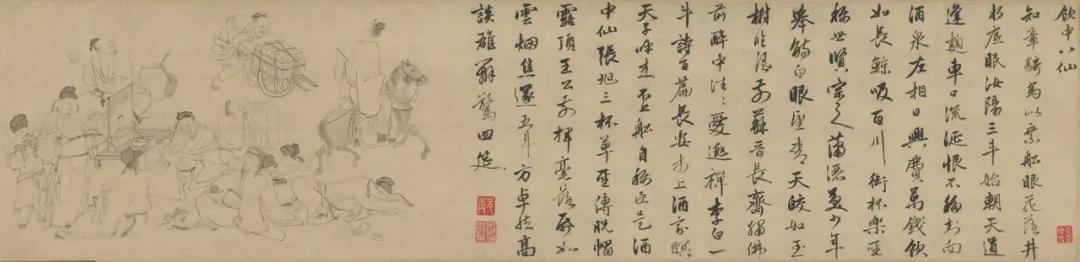 飲中八仙
知章騎馬似乘船眼花落井
水底眠汝陽三斗始朝天道
逢麹車口流涎恨不移封向
酒泉左相日興費萬錢飲
如長鯨吸百川銜杯樂聖
稱世賢宗之蕭灑美少年
舉觴白眼望青天皎如玉
樹臨風前蘇晉長齋繡佛
前醉中往〻愛逃禪李白一
斗詩百篇長安市上酒家眠
天子呼來不上船自稱臣是酒
中仙張旭三杯草聖傳脫帽
露頂王公前揮毫落紙如
雲烟焦遂五斗方卓然高
談雄辯驚四筵